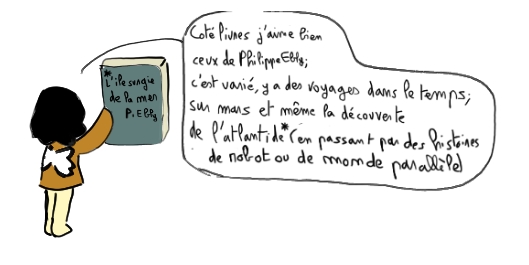 Coté livres j'aime bien
ceux de Philippe Ebly;
c'est varié, y a des voyages dans le temps;
sur mars et même la découverte
de l'atlantide* (en passant par des histoires
de robot ou de monde parallèle)
*
L'ile surgie
de la mer
P. Ebly